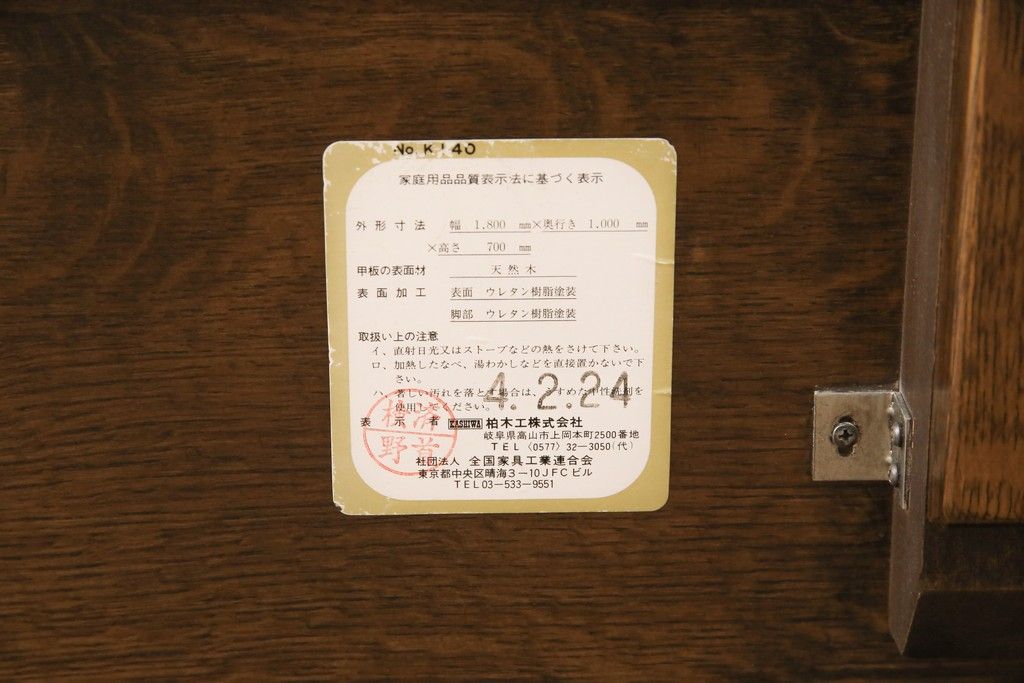 No. K140
家庭用品品質表示法に基づく表示
外形寸法 幅 1.800 mm×奥行き 1.000 mm
×高さ 700 mm
甲板の表面材 天然木
表面加工 表面 ウレタン樹脂塗装
脚部 ウレタン樹脂塗装
取扱い上の注意
イ、直射日光又はストーブなどの熱をさけて下さい。
ロ、加熱したなべ、湯わかしなどを直接置かないで下
さい。
ハ、著しい汚れを落とす場合は、うすめた中性洗剤を
使用してください。
4.2.24
検済
野首
表示者 KASHIWA 柏木工株式会社
岐阜県高山市上岡本町2500番地
TEL〈0577〉32-3050(代)
社団法人 全国家具工業連合会
東京都中央区晴海3-10JFCビル
TEL03-533-9551